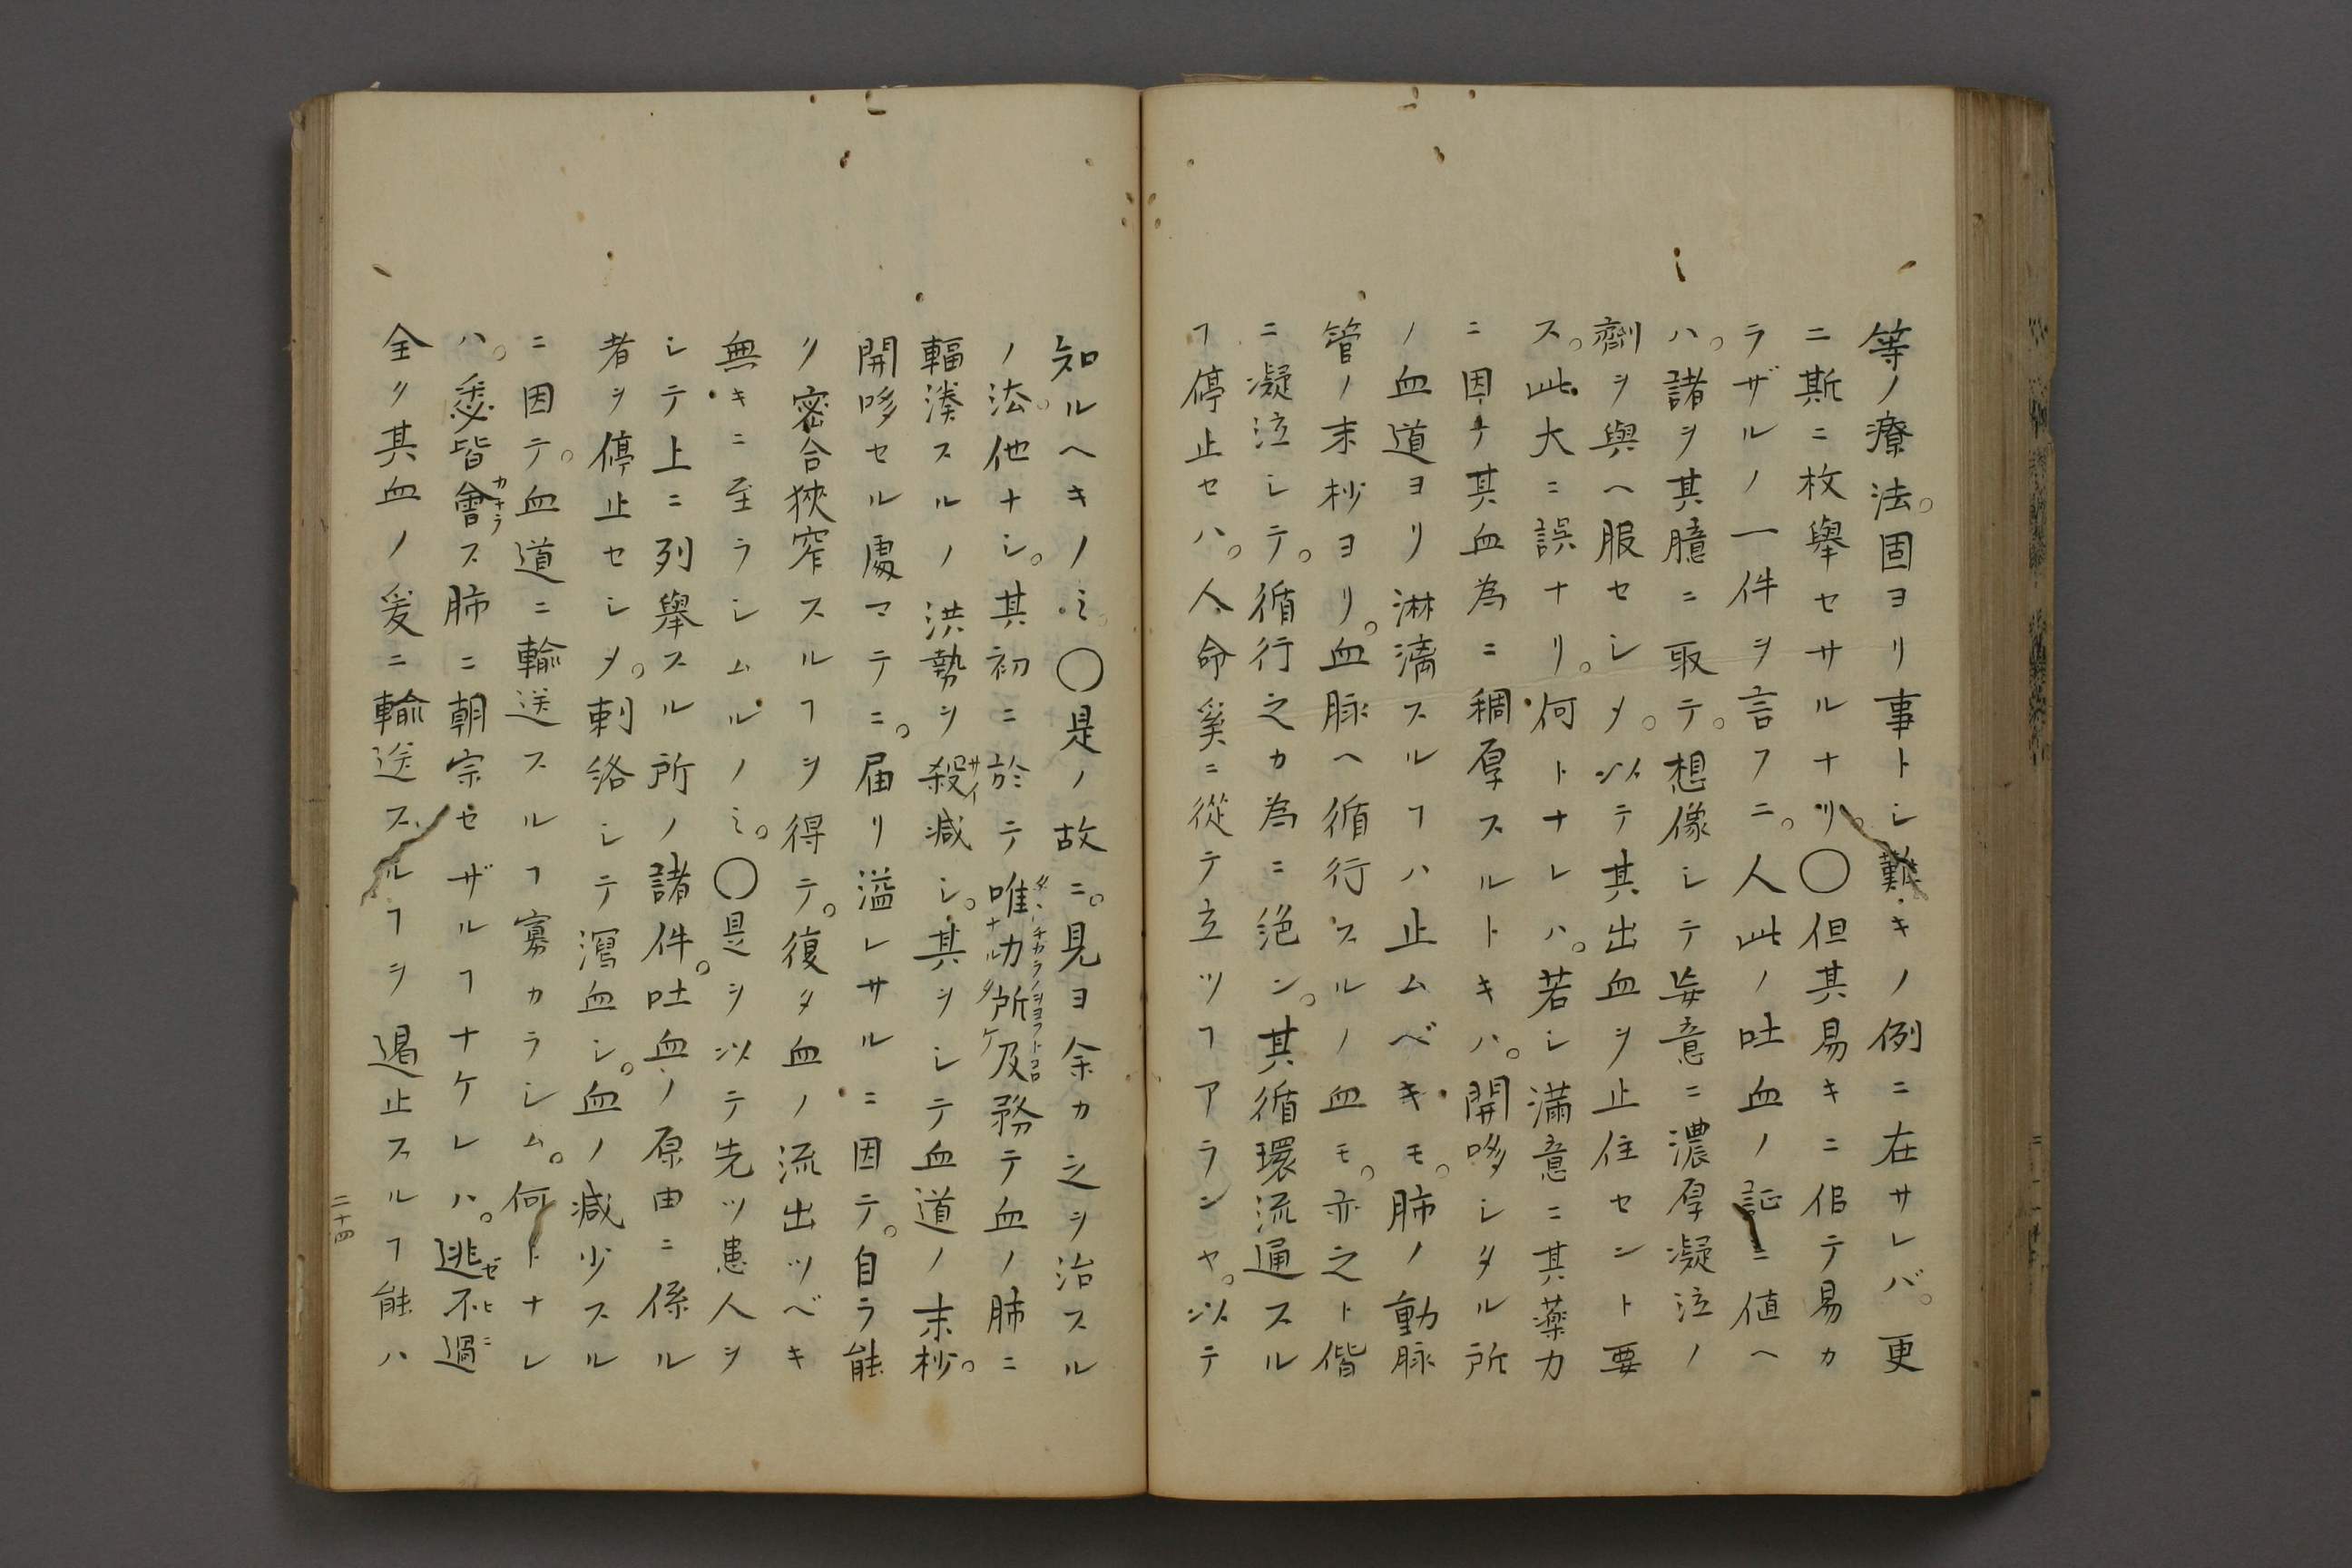 等ノ療法。固ヨリ事トシ難キノ例ニ在サレバ。更
ニ斯ニ枚舉セサルナリ。〇但其易キニ似テ易カ
ラザルノ一件ヲ言フニ。人此ノ吐血ノ証ニ値ヘ
ハ。諸ヲ其臆ニ取テ。想像シテ妄意ニ濃厚凝泣ノ
劑ヲ與ヘ服セシメ。以テ其出血ヲ止住セント要
ス。此大ニ誤ナリ。何トナレハ。若シ滿意ニ其薬力
ニ因テ其血為ニ稠厚スルトキハ。開哆シタル所
ノ血道ヨリ淋漓スルヿハ止ムベキモ。肺ノ動脉
管ノ末杪ヨリ。血脉ヘ循行スルノ血モ。亦之ト偕
ニ凝泣シテ。循行之カ為ニ絶ン。其循環流通スル
ヿ停止セハ。人命奚ニ從テ立ツヿアランヤ。以テ
知ルヘキノミ。〇是ノ故ニ。見ヨ余カ之ヲ治スル
ノ法。他ナシ。其初ニ於テ唯力所及務テ血ノ肺ニ
輻湊スルノ洪勢ヲ殺サイ減シ。其ヲシテ血道ノ末杪。
開哆セル處マテニ。届リ溢レサルニ因テ。自ラ能
リ密合狹窄スルヿヲ得テ。復タ血ノ流出ツベキ
無キニ至ラシムルノミ。〇是ヲ以テ先ツ患人ヲ
シテ上ニ列舉スル所ノ諸件。吐血ノ原由ニ係ル
者ヲ停止セシメ。刺絡シテ瀉血シ。血ノ減少スル
ニ因テ。血道ニ輸送スルヿ寡カラシム。何トナレ
ハ。悉皆會カナラス肺ニ朝宗セザルヿナケレハ。逃不過ゼヒニ
全リ其血ノ爰ニ輸送スルヿヲ遏止スルヿ能ハ
二十四